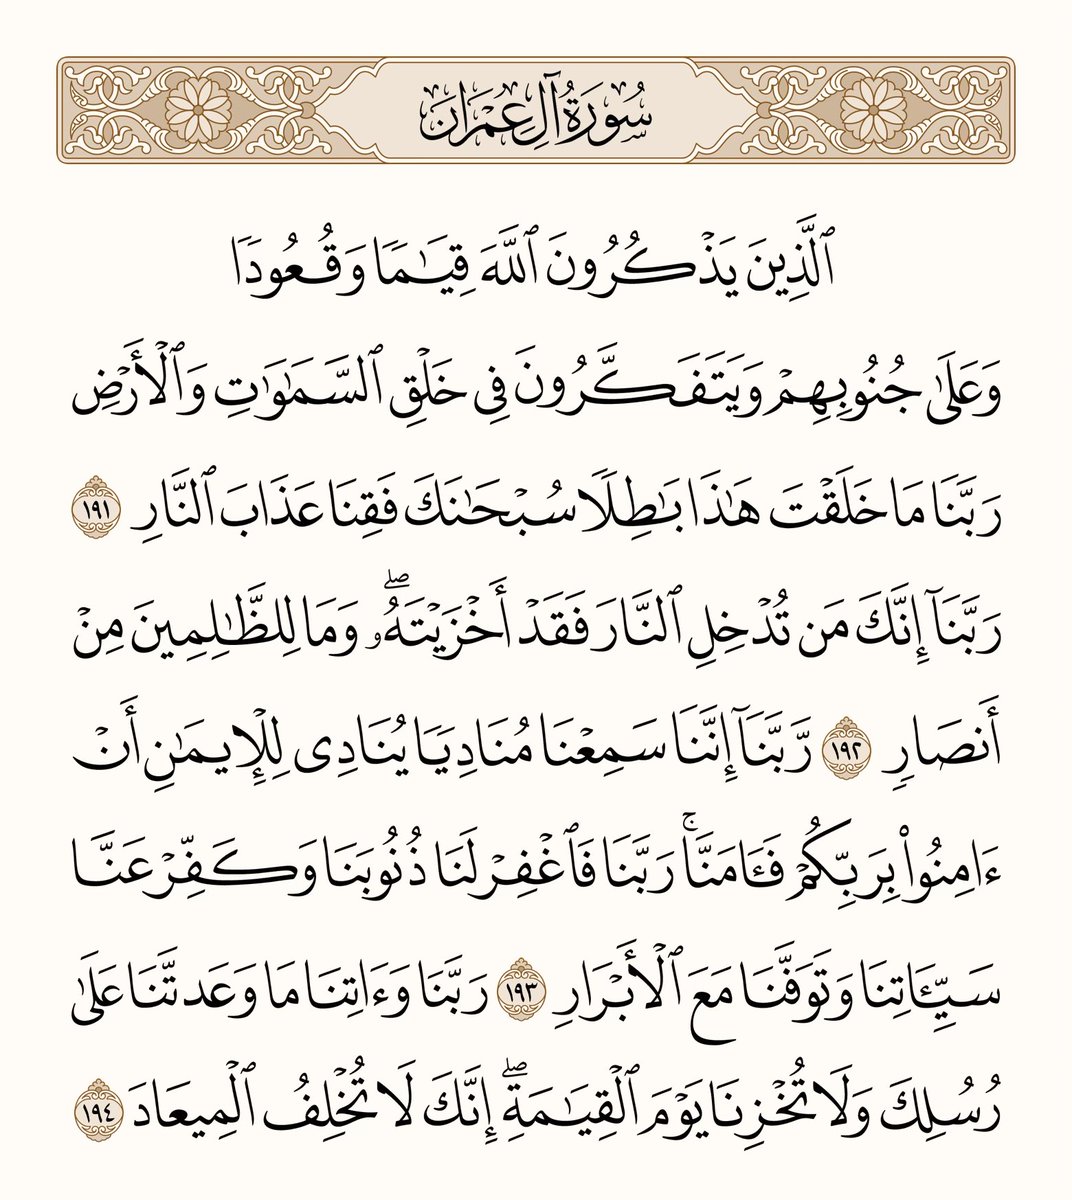 سُورَةُ آلِ عِمْرَانَ
ٱلَّذِينَ يَذْكُرُونَ ٱللَّهَ قِيَـٰمًا وَقُعُودًا
وَعَلَىٰ جُنُوبِهِمْ وَيَتَفَكَّرُونَ فِى خَلْقِ ٱلسَّمَـٰوَٰتِ وَٱلْأَرْضِ
رَبَّنَا مَا خَلَقْتَ هَـٰذَا بَـٰطِلًا سُبْحَـٰنَكَ فَقِنَا عَذَابَ ٱلنَّارِ ١٩١
رَبَّنَآ إِنَّكَ مَن تُدْخِلِ ٱلنَّارَ فَقَدْ أَخْزَيْتَهُۥ ۖ وَمَا لِلظَّـٰلِمِينَ مِنْ
أَنصَارٍ ١٩٢ رَّبَّنَآ إِنَّنَا سَمِعْنَا مُنَادِيًا يُنَادِى لِلْإِيمَـٰنِ أَنْ
ءَامِنُوا۟ بِرَبِّكُمْ فَـَٔامَنَّا ۚ رَبَّنَا فَٱغْفِرْ لَنَا ذُنُوبَنَا وَكَفِّرْ عَنَّا
سَيِّـَٔاتِنَا وَتَوَفَّنَا مَعَ ٱلْأَبْرَارِ ١٩٣ رَبَّنَا وَءَاتِنَا مَا وَعَدتَّنَا عَلَىٰ
رُسُلِكَ وَلَا تُخْزِنَا يَوْمَ ٱلْقِيَـٰمَةِ ۖ إِنَّكَ لَا تُخْلِفُ ٱلْمِيعَادَ ١٩٤